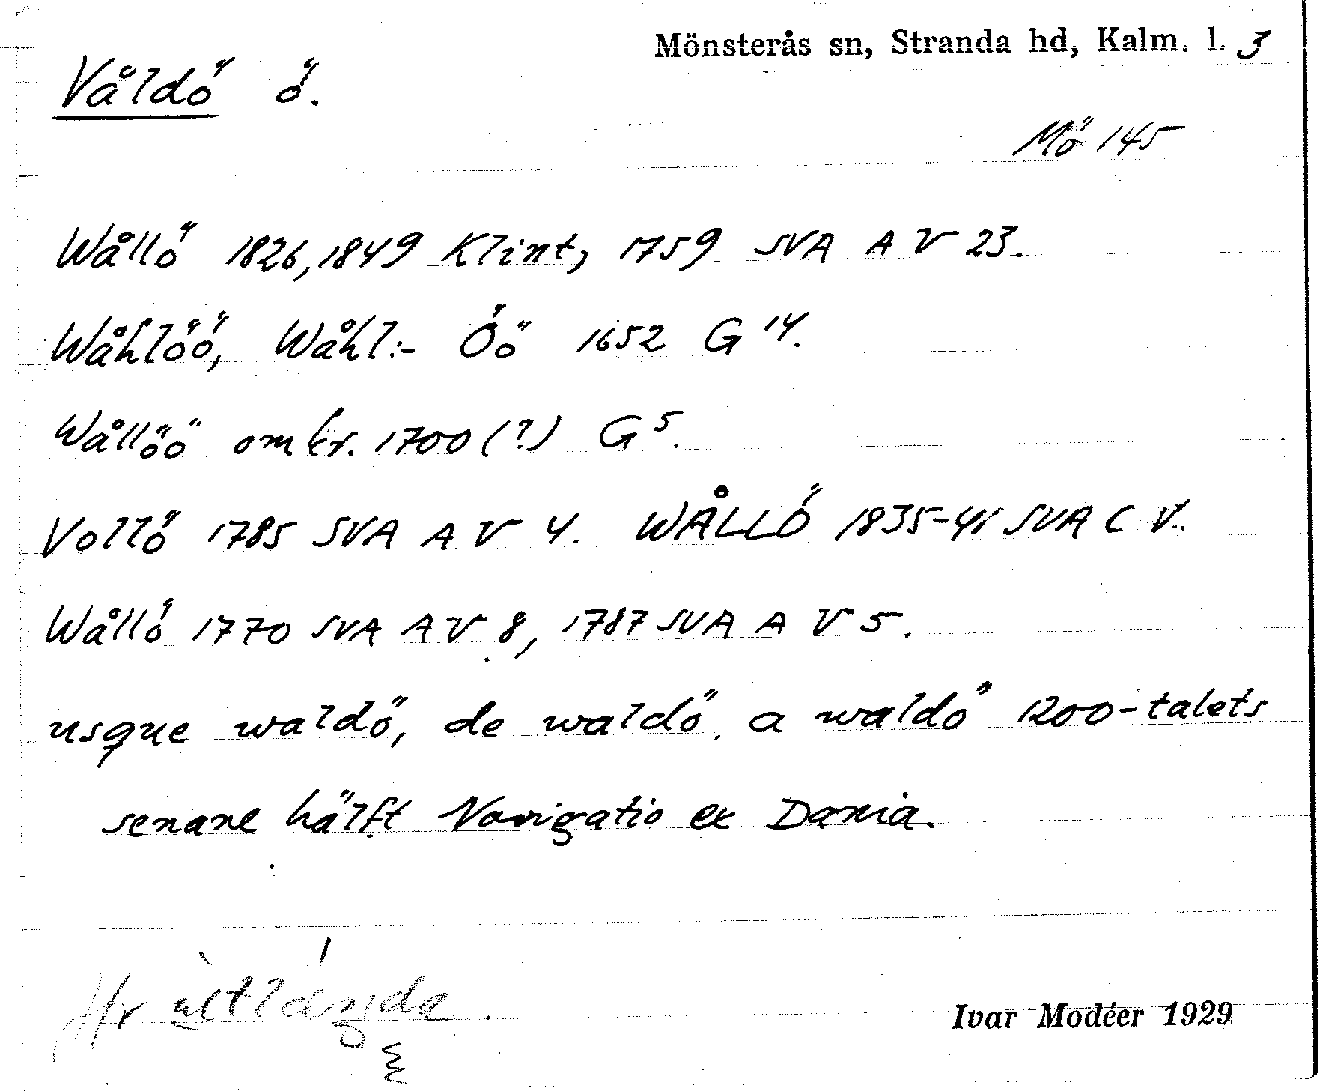 Mönsterås sn, Stranda hd, Kalm. l. 3
Våldö ö.
Mö 145
Wållö 1826, 1849 Klint, 1759 SVA A V 23.
Wåhlöö, Wåhl:- Öö 1652 G 14.
Wållöö omkr. 1700 (?) G 5.
Vollö 1785 SVA A V 4. WÅLLÖ 1835-41 SVA C V.
Wållö 1770 SVA A V 8, 1787 SVA A V 5.
usque waldö, de waldö, a waldö 1200-talets
senare hälft Navigatio ex Dania.
Ivar Modéer 1929